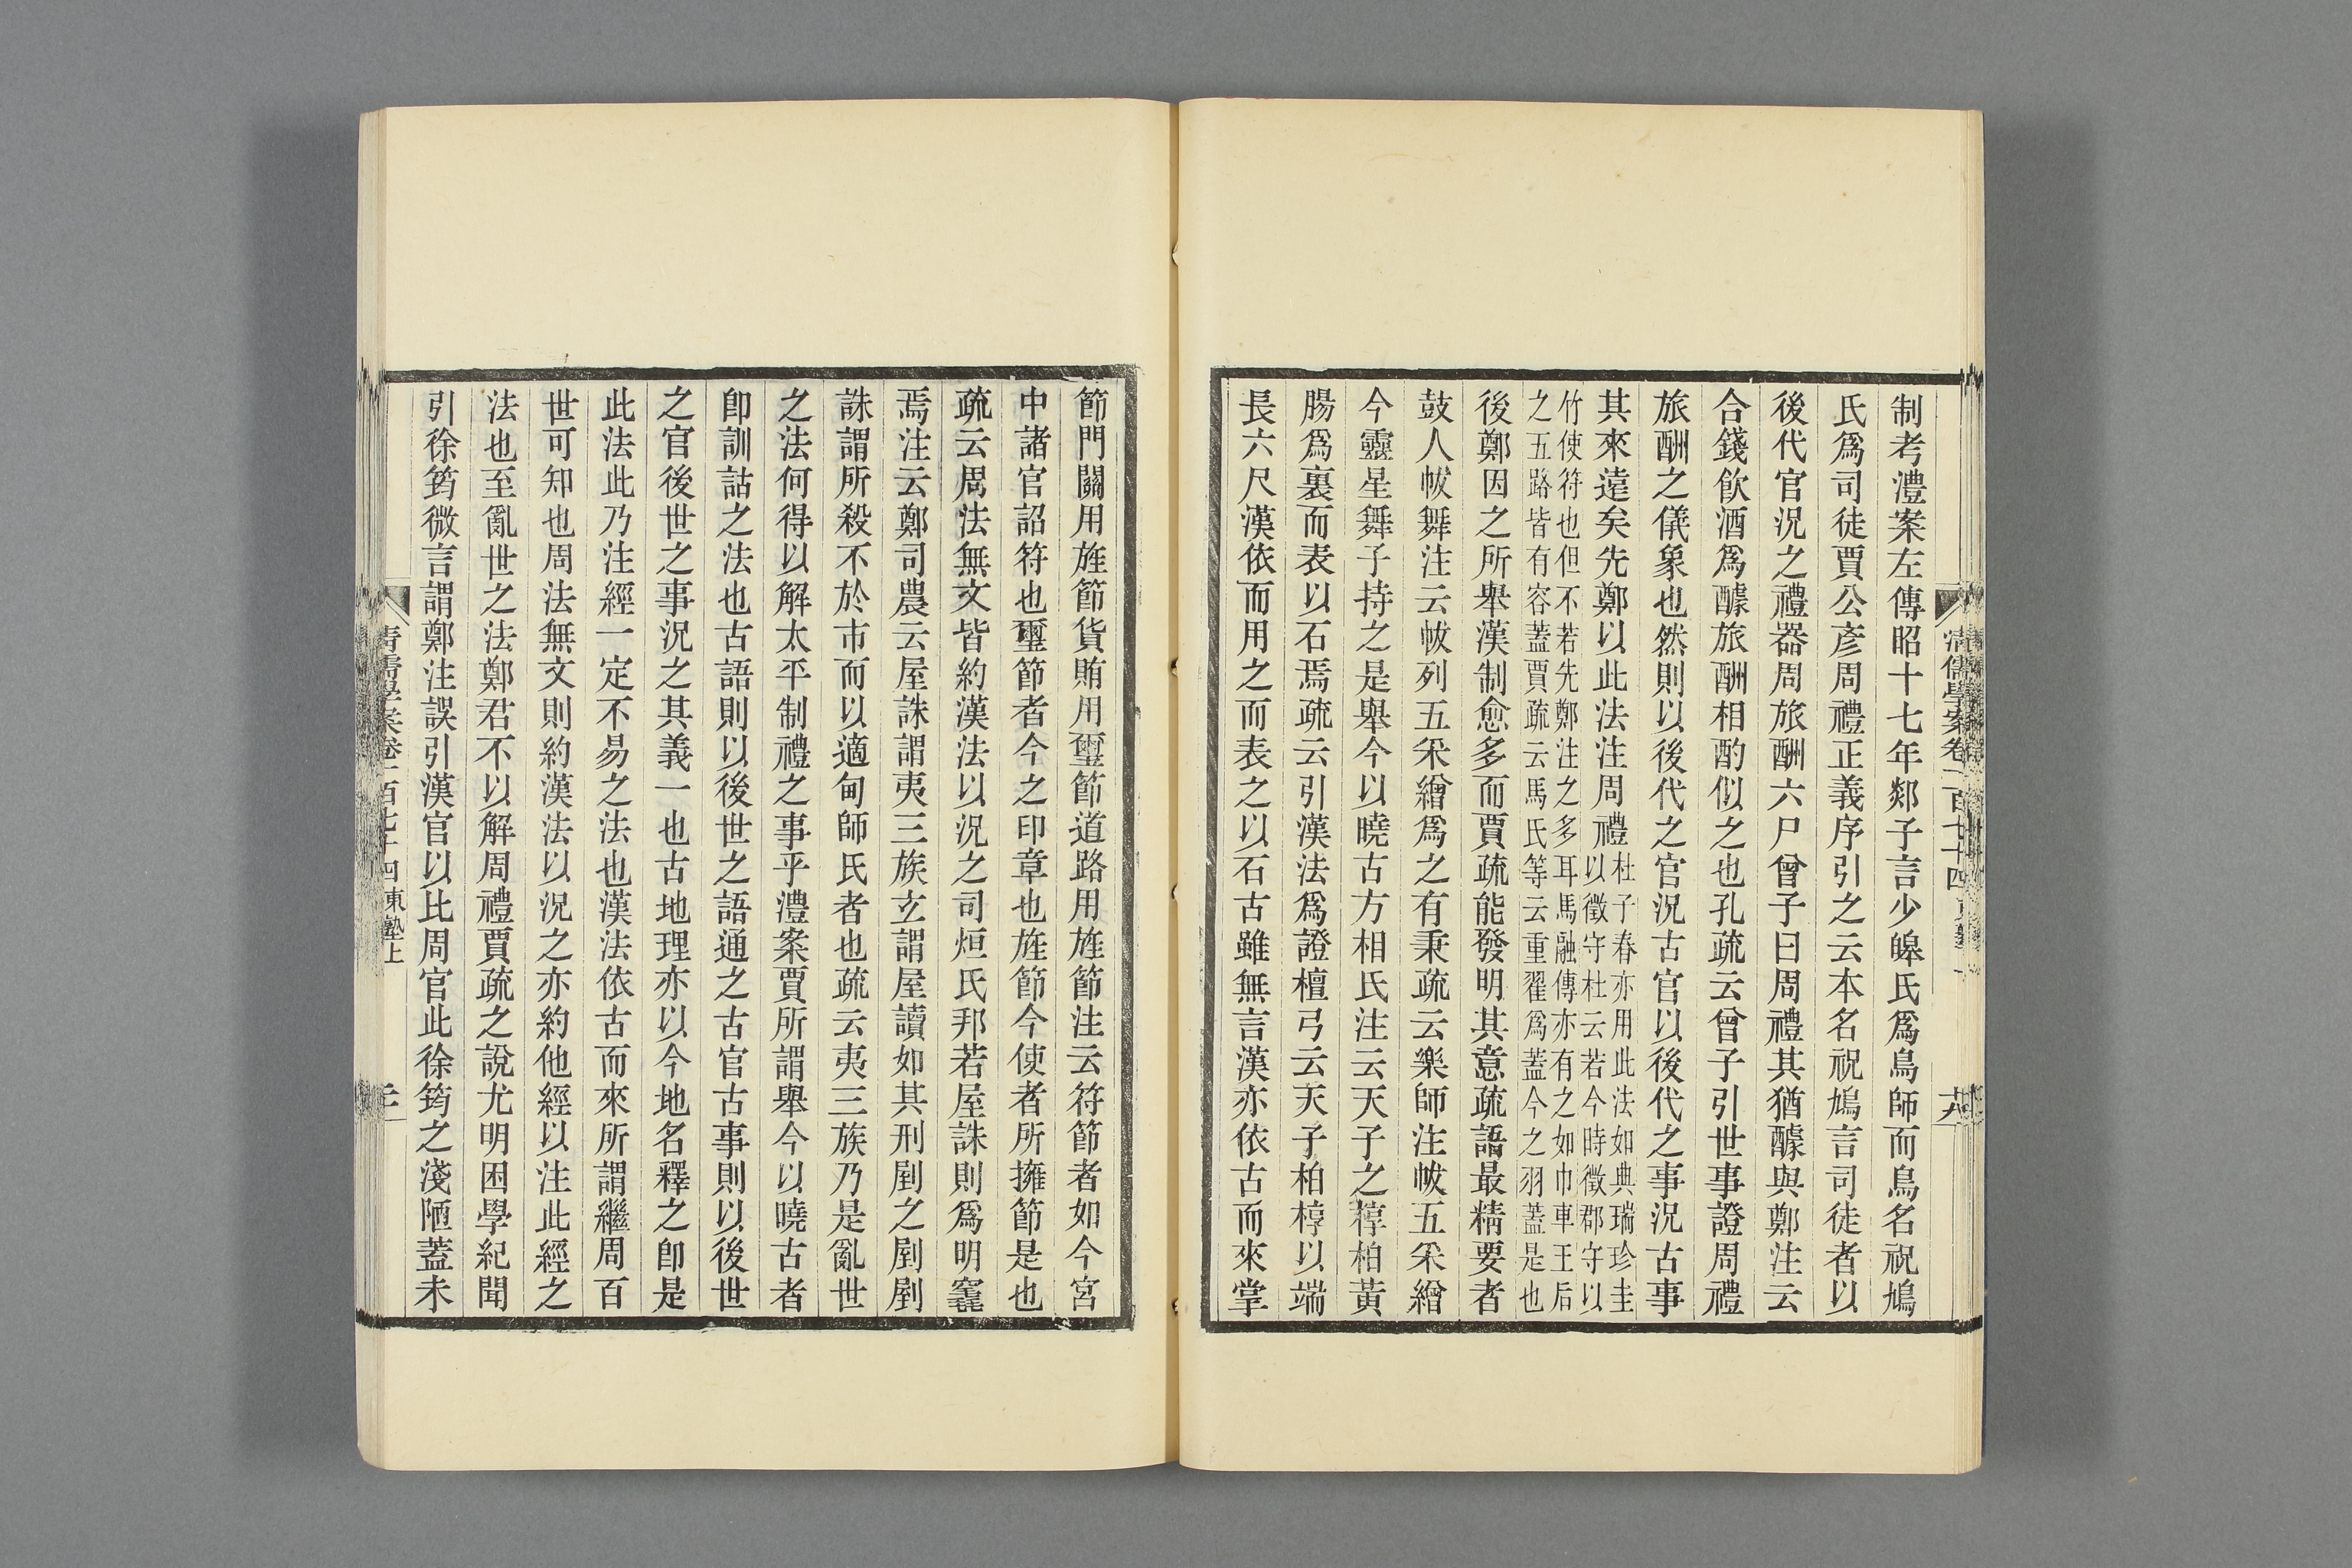 制考澧案左傳昭十七年郯子言少皞氏爲鳥師而鳥名祝鳩
氏爲司徒賈公彥周禮正義序引之云本名祝鳩言司徒者以
後代官況之禮器周旅酬六尸曾子曰周禮其猶醵與鄭注云
合錢飮酒爲醵旅酬相酌似之也孔疏云曾子引世事證周禮
旅酬之儀象也然則以後代之官況古官以後代之事況古事
其來遠矣先鄭以此法注周禮杜子春亦用此法如典瑞珍圭以徵守杜云若今時徵郡守以
竹使符也但不若先鄭注之多耳馬融傳亦有之如巾車王后之五路皆有容蓋賈疏云馬氏等云重翟爲蓋今之羽蓋是也
後鄭因之所舉漢制愈多而賈疏能發明其意疏語最精要者
鼓人帗舞注云帗列五采繒爲之有秉疏云樂師注帗五采繒
今靈星舞子持之是舉今以曉古方相氏注云天子之椁柏黃
腸爲裏而表以石焉疏云引漢法爲證檀弓云天子柏椁以端
長六尺漢依而用之而表之以石古雖無言漢亦依古而來掌
節門關用旌節貨賄用璽節道路用旌節注云符節者如今宮
中諸官詔符也璽節者今之印章也旌節今使者所擁節是也
疏云周法無文皆約漢法以況之司烜氏邦若屋誅則爲明竁
焉注云鄭司農云屋誅謂夷三族玄謂屋讀如其刑剭之剭剭
誅謂所殺不於市而以適甸師氏者也疏云夷三族乃是亂世
之法何得以解太平制禮之事乎澧案賈所謂舉今以曉古者
卽訓詁之法也古語則以後世之語通之古官古事則以後世
之官後世之事況之其義一也古地理亦以今地名釋之卽是
此法此乃注經一定不易之法也漢法依古而來所謂繼周百
世可知也周法無文則約漢法以況之亦約他經以注此經之
法也至亂世之法鄭君不以解周禮賈疏之說尤明困學紀聞
引徐筠微言謂鄭注誤引漢官以比周官此徐筠之淺陋蓋未